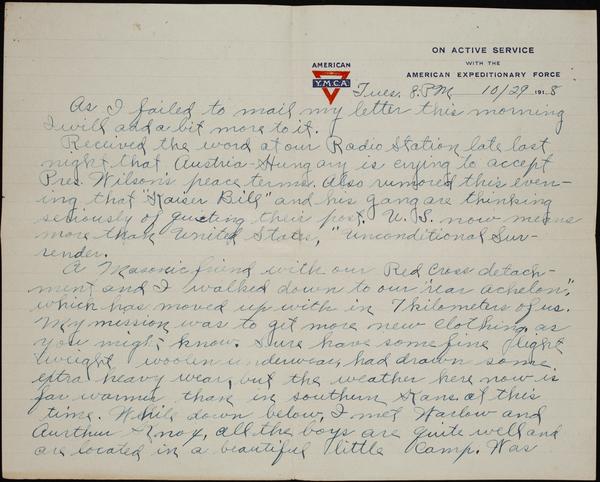 AMERICAN
Y.M.C.A.
ON ACTIVE SERVICE
WITH THE
AMERICAN EXPEDITIONARY FORCE
Tues. 8. P.M. 10/29 1918
As I failed to mail my letter this morning
I will add a bit more to it.
Received the word at our Radio Station late last
night that Austria-Hungary is crying to accept
Pres. Wilson's peace terms. Also rumored this even-
ing that "Kaiser Bill" and his gang are thinking
seriously of quitting their post. U.S. now means
more than United States, "Unconditional Sur-
render.
A Masonic friend with our Red Cross detach-
ment and I walked down to our "rear achelon",
which has moved up with in 7 kilometers of us.
My mission was to get more new clothing, as
you might know. Sure have some fine light
weight woolen underwear, had drawn some
extra heavy wear, but the weather here now is
far warmer than in southern Kans. at this
time. While down below, I met Warlow and
Aurthur Knox, all the boys are quite well and
are located in a beautiful little camp. Was